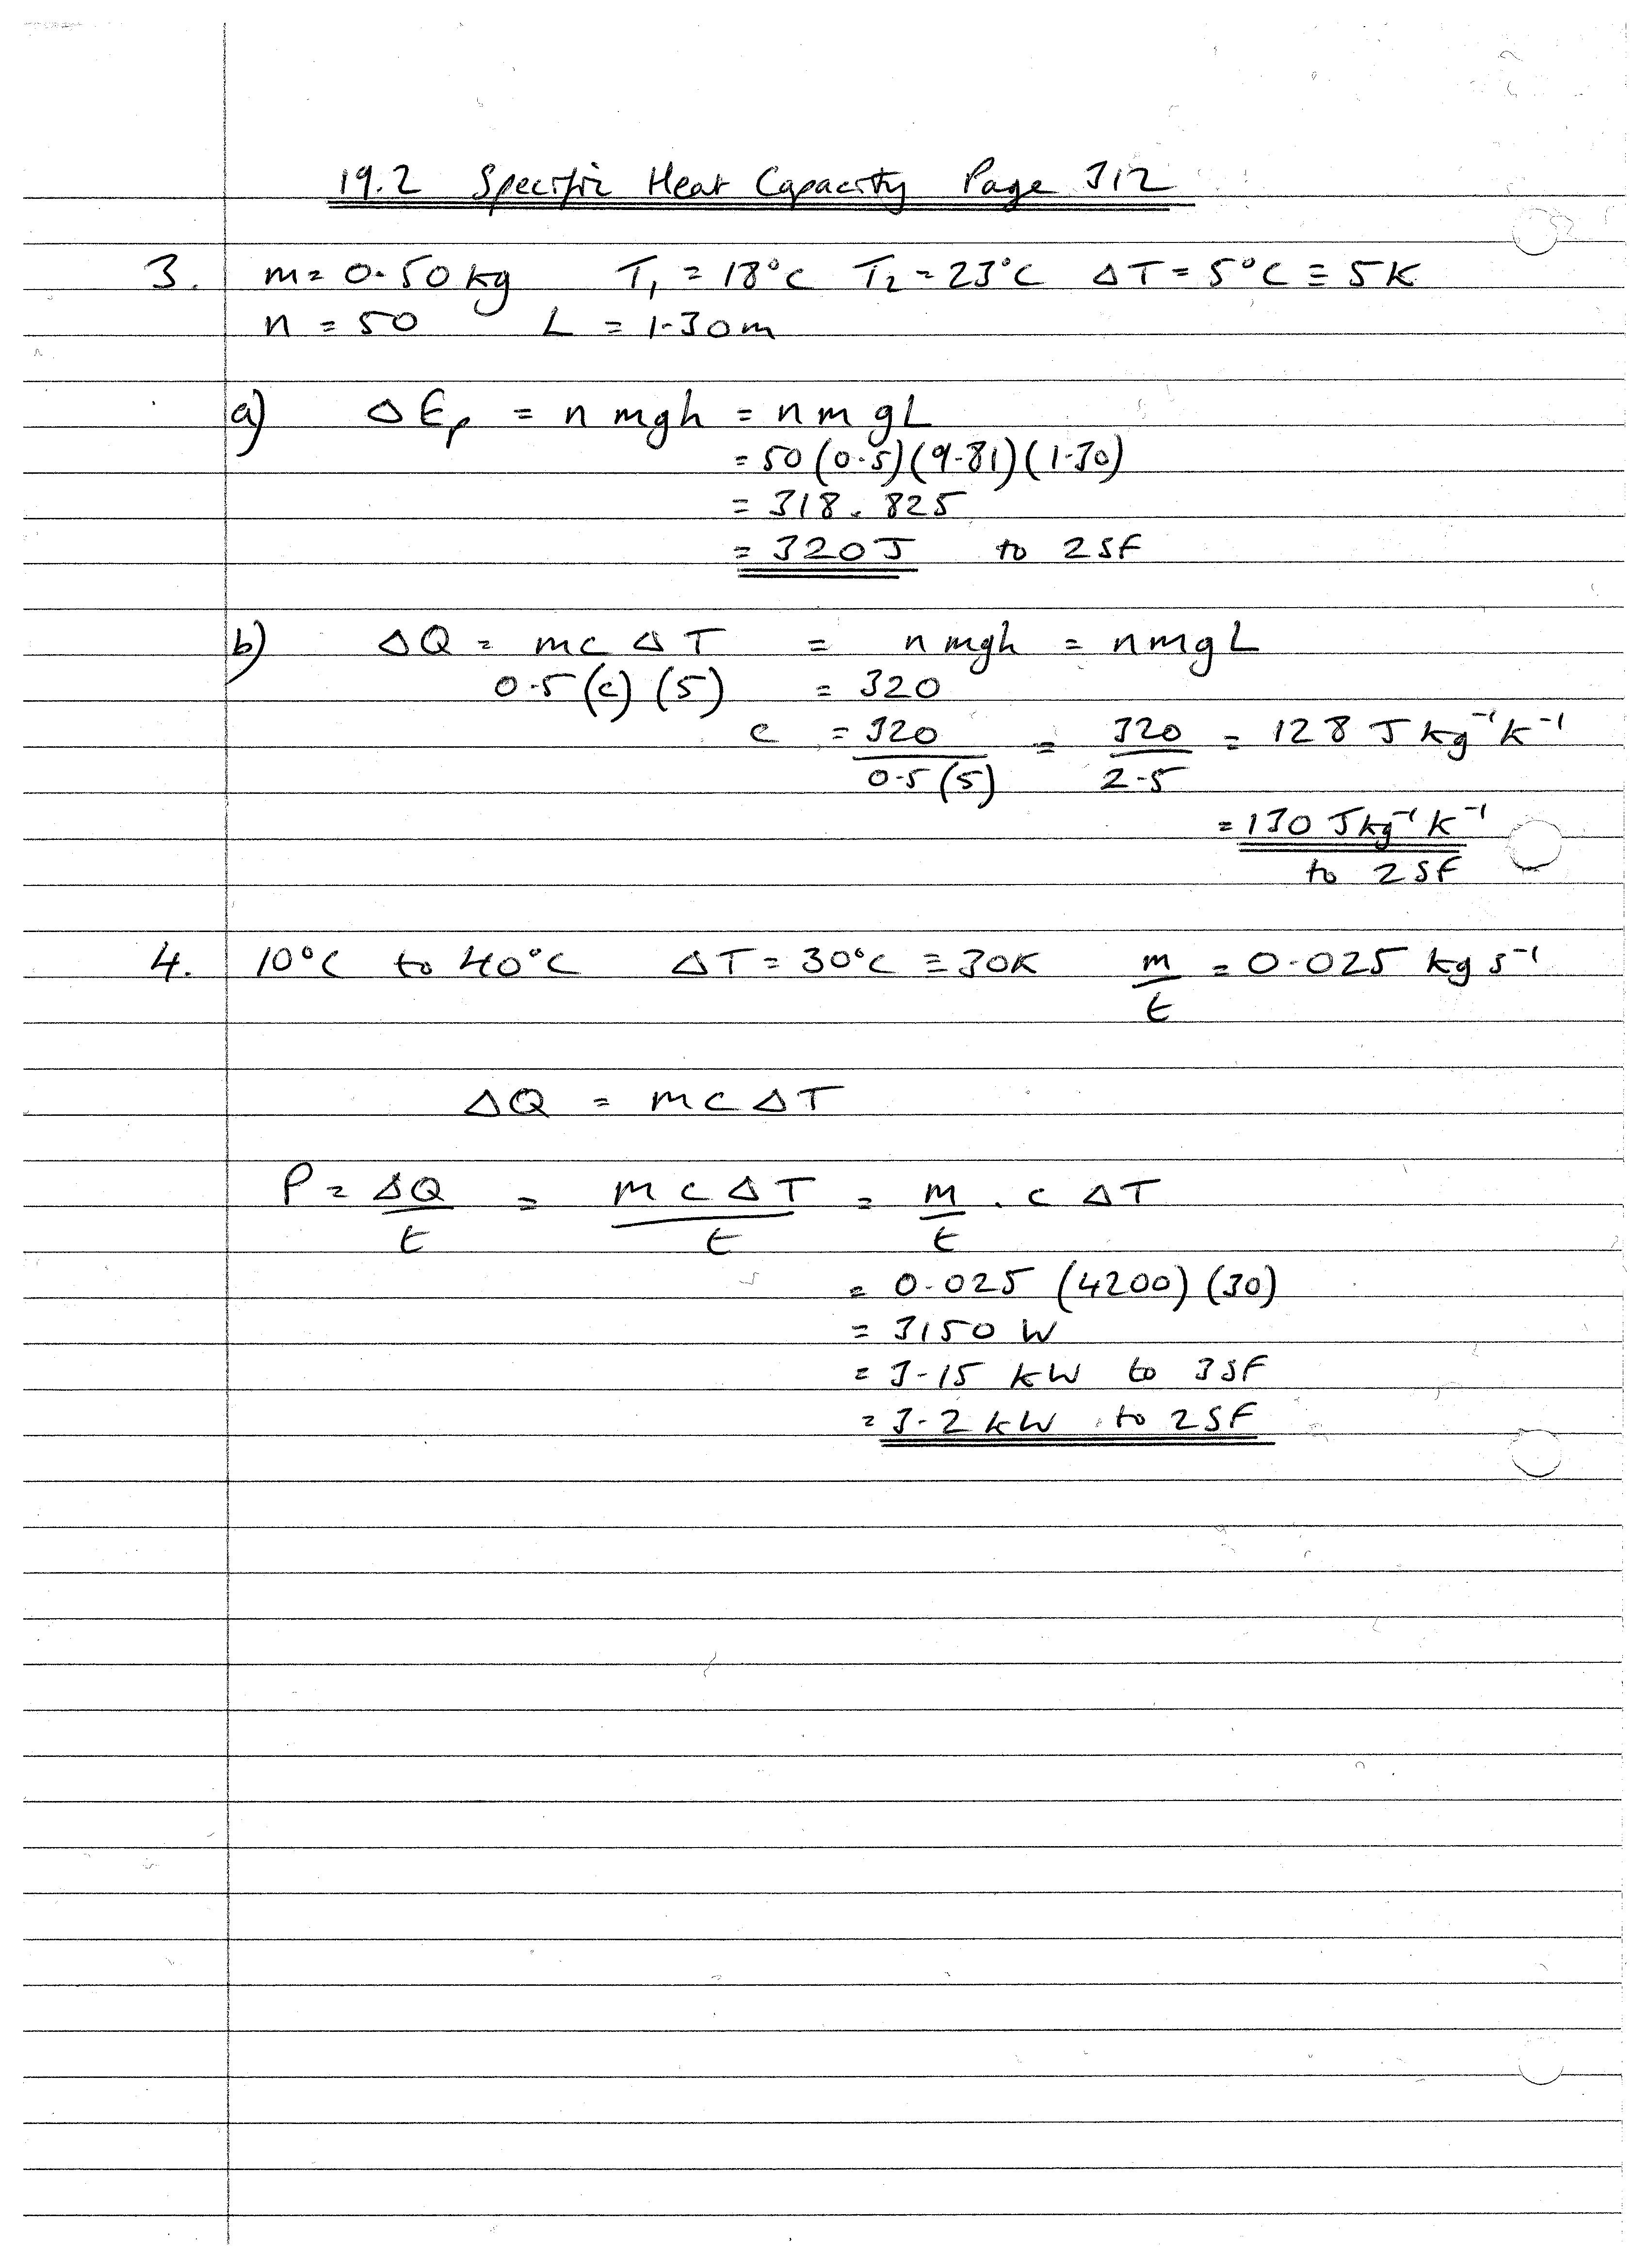 19.2 Specific Heat Capacity Page 312
3. m = 0.50 kg T₁ = 18°C T₂ = 23°C ΔT = 5°C ≡ 5K
n = 50 L = 1.30m
a) ΔEₚ = nmgh = nmgL
= 50(0.5)(9.81)(1.30)
= 318.825
= 320J to 2SF
b) ΔQ = mcΔT = nmgh = nmgL
0.5(c)(5) = 320
c = 320/0.5(5) = 320/2.5 = 128 J kg⁻¹K⁻¹
= 130 Jkg⁻¹K⁻¹
to 2SF
4. 10°C to 40°C ΔT = 30°C ≡ 30K m/t = 0.025 kg s⁻¹
ΔQ = mcΔT
P = ΔQ/t = mcΔT/t = m/t . cΔT
= 0.025 (4200)(30)
= 3150 W
= 3.15 kW to 3SF
= 3.2 kW to 2SF